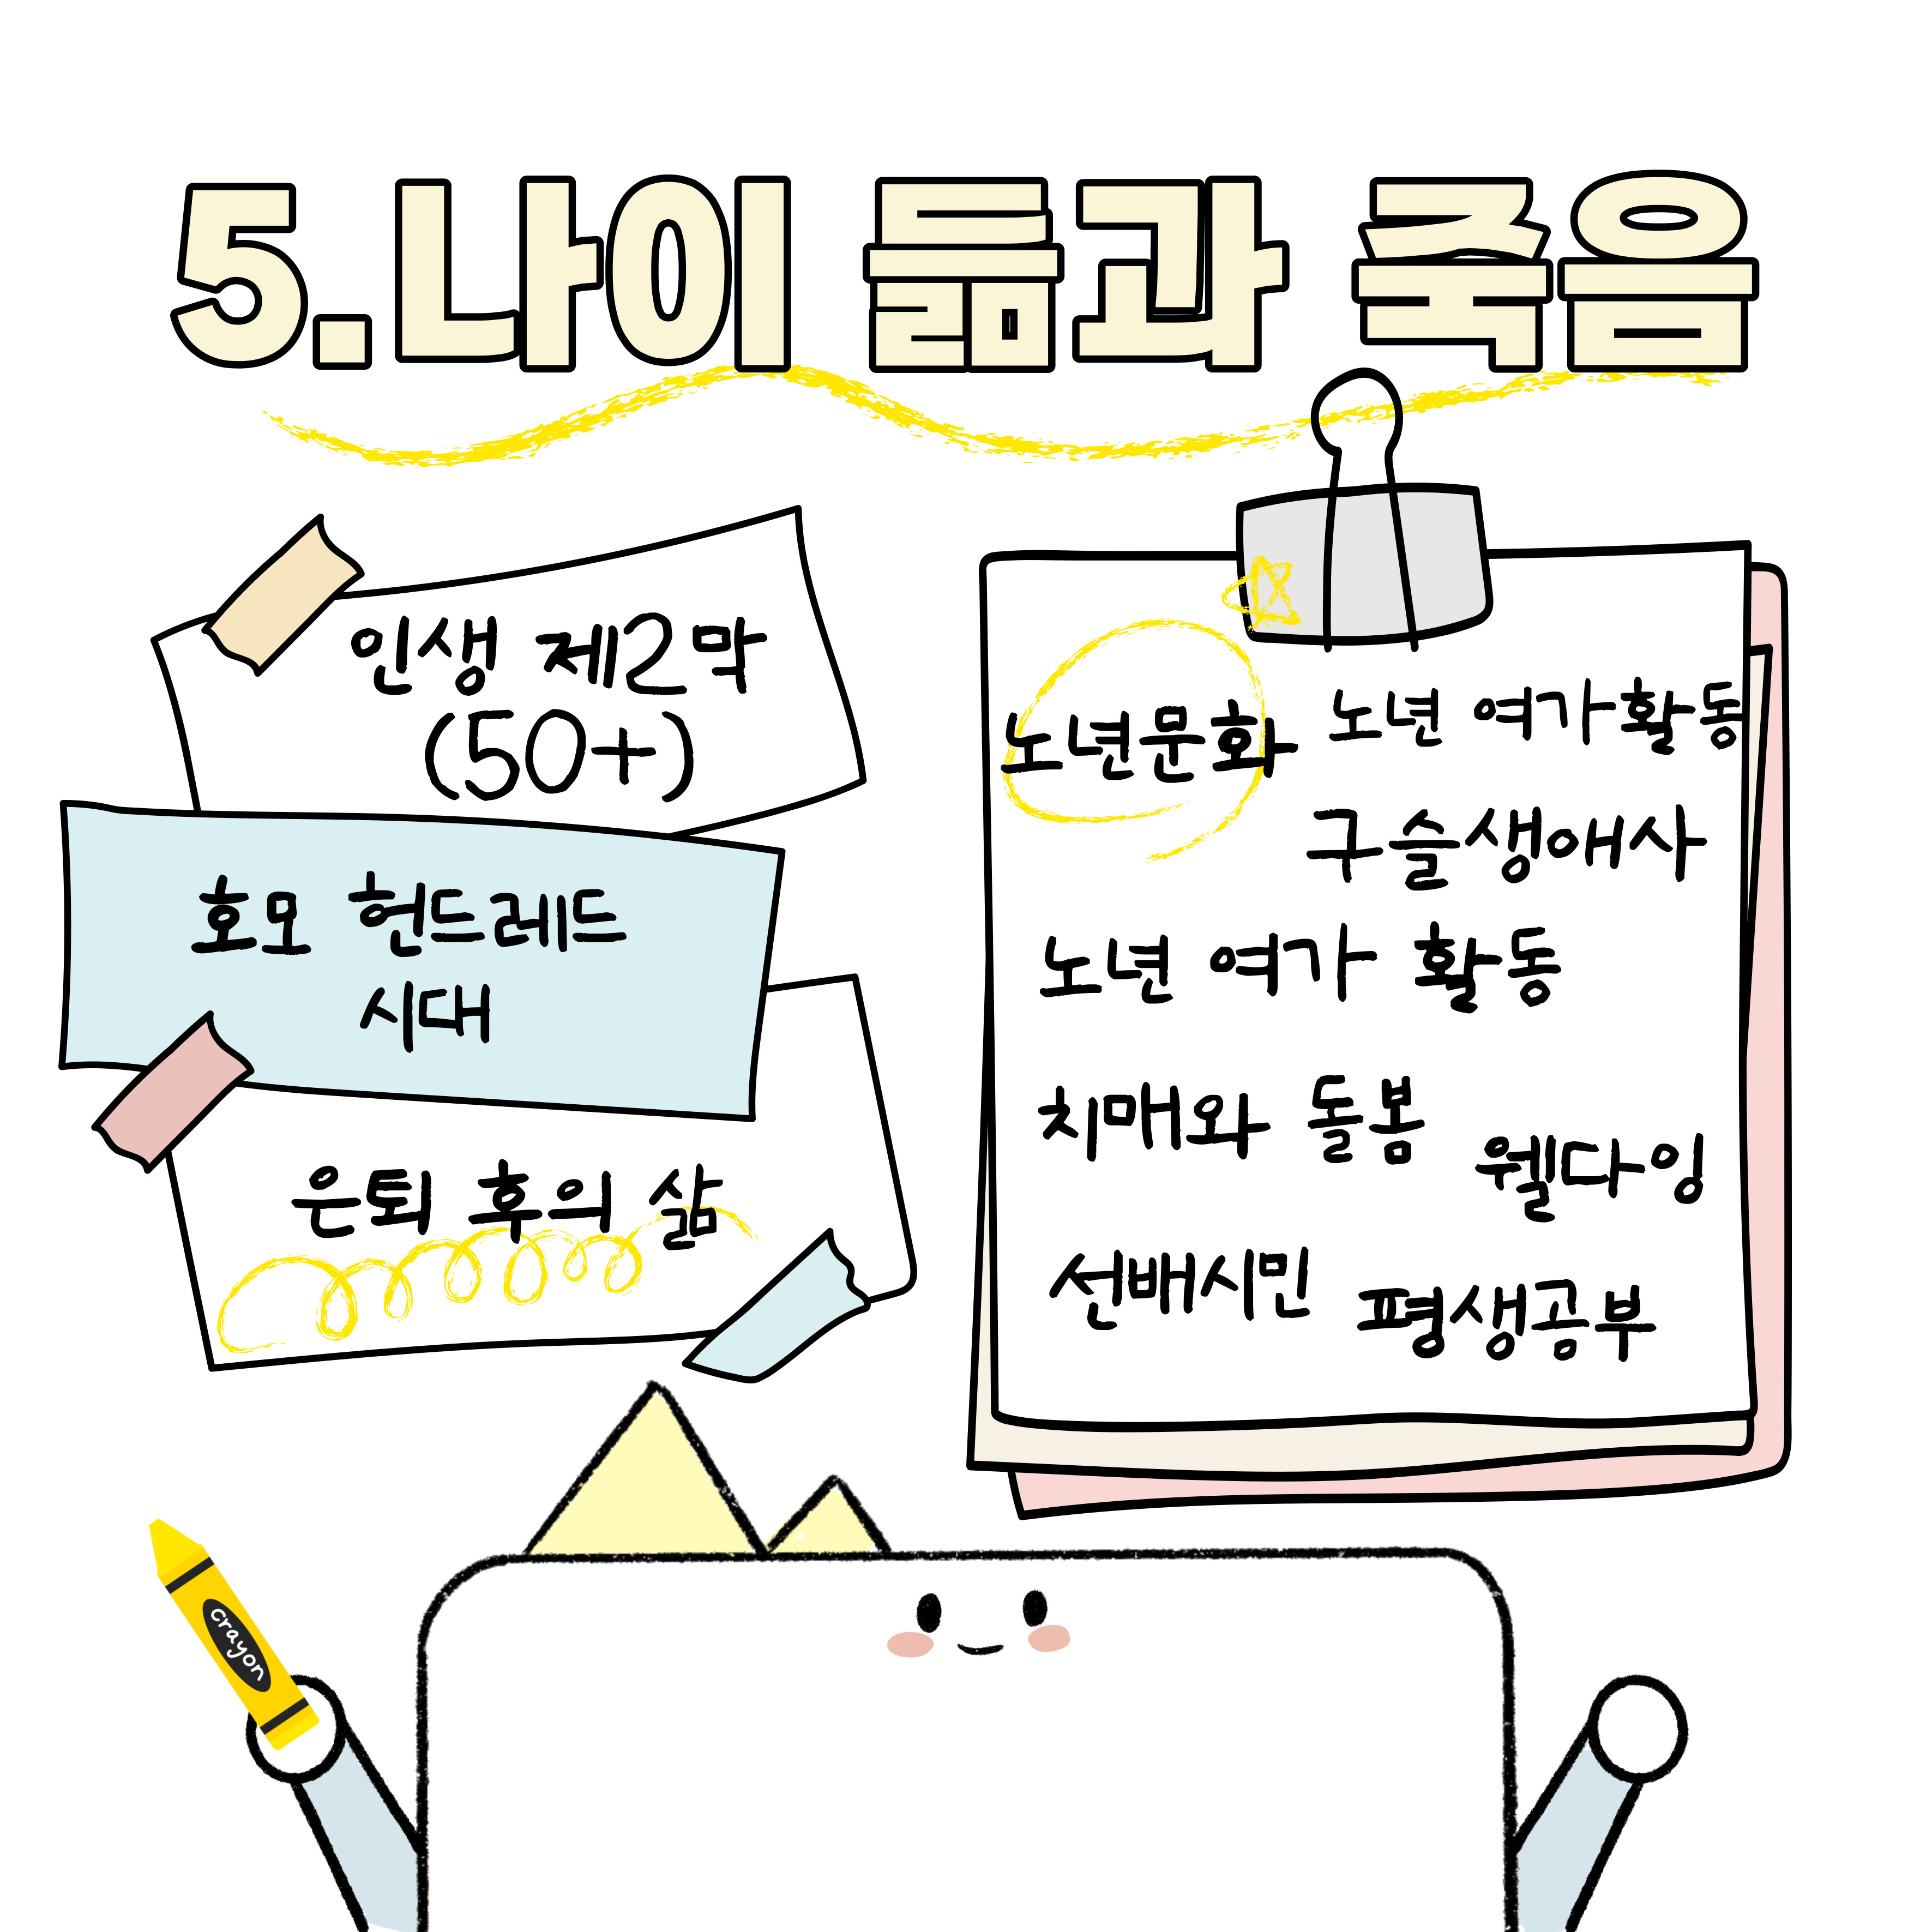 5.나이 듦과 죽음
인생 제2막
(50+)
호모 헌드레드
시대
은퇴 후의 삶
노년문화
노년 여가활동
구술생애사
노년 여가 활동
치매와 돌봄
웰다잉
선배시민
평생공부
crayon